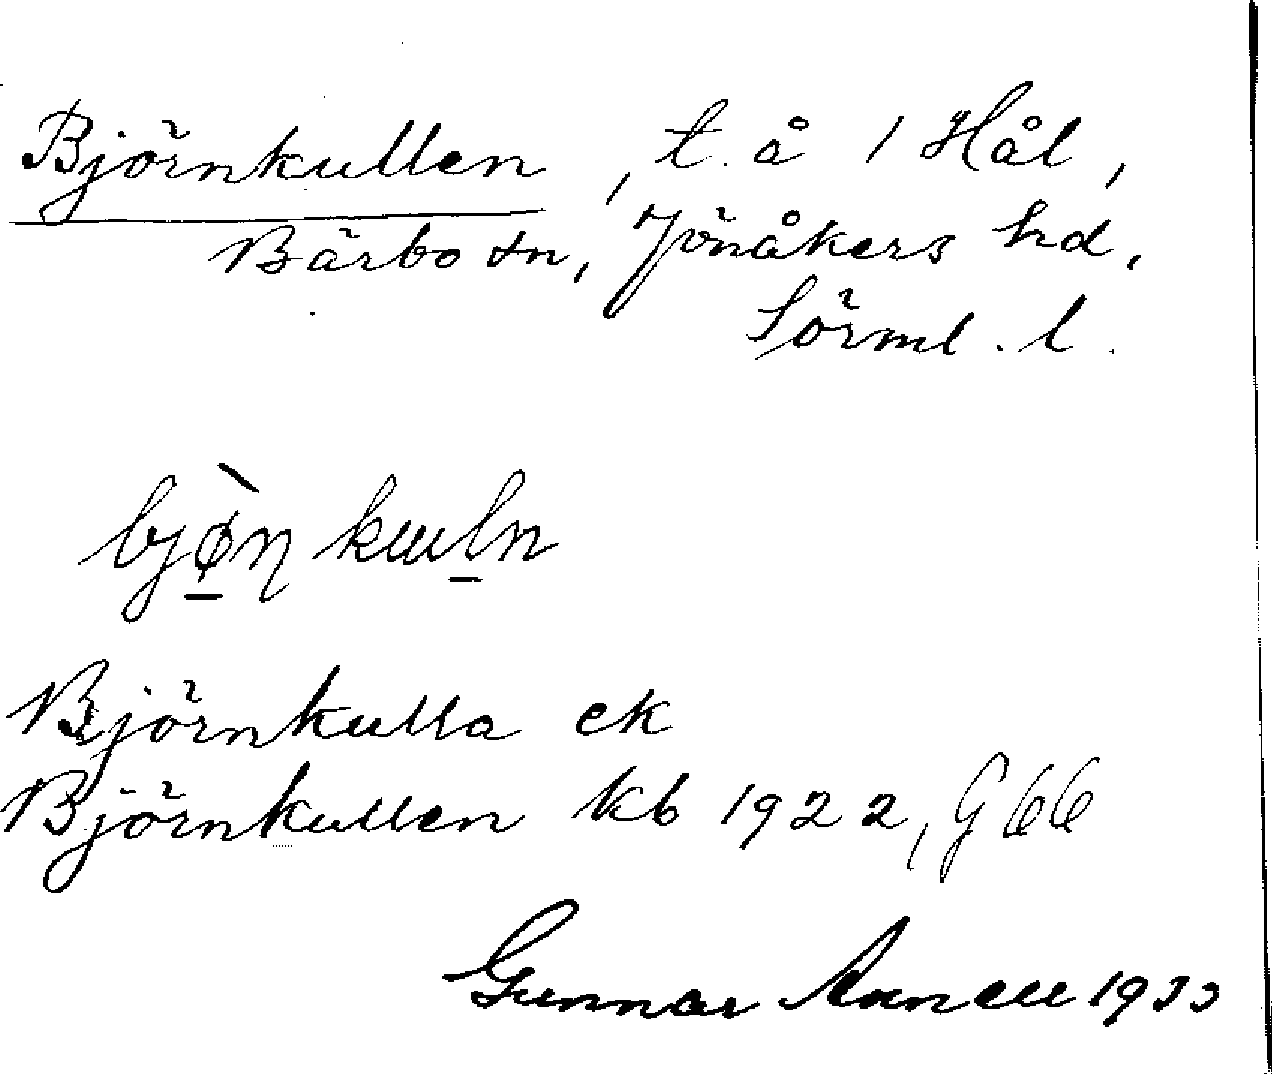 Björnkullen, t. å 1 Hål,
Bärbo sn, Jönåkers hd,
Sörml. l.
Björnkulla ek
Björnkullen kb 1922, G 66
Gunnar 1933